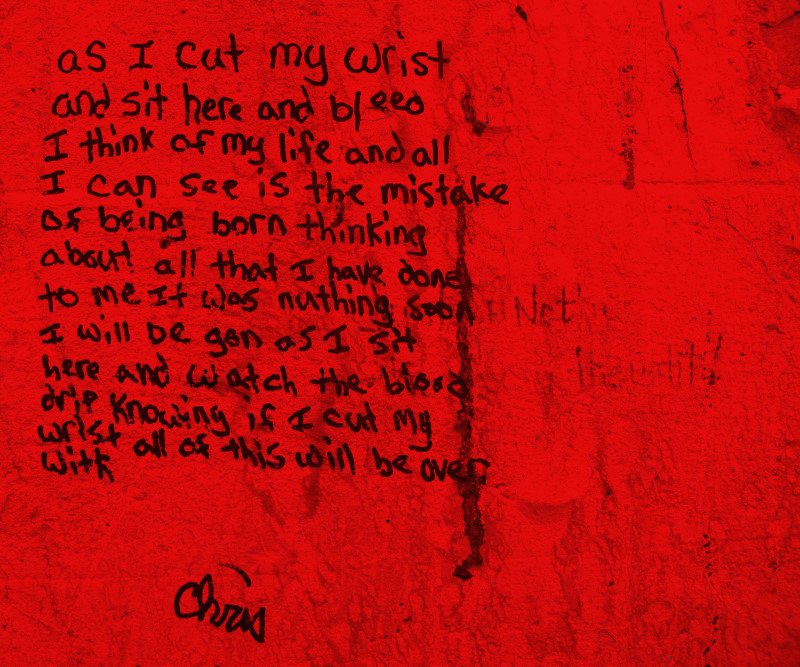 as I cut my wrist
and sit here and bleed
I think of my life and all
I can see is the mistake
of being born thinking
about all that I have done
to me It was nuthing soon
I will be gon as I sit
here and watch the blood
drip knowing if I cut my
wrist all of this will be over
with
Chris